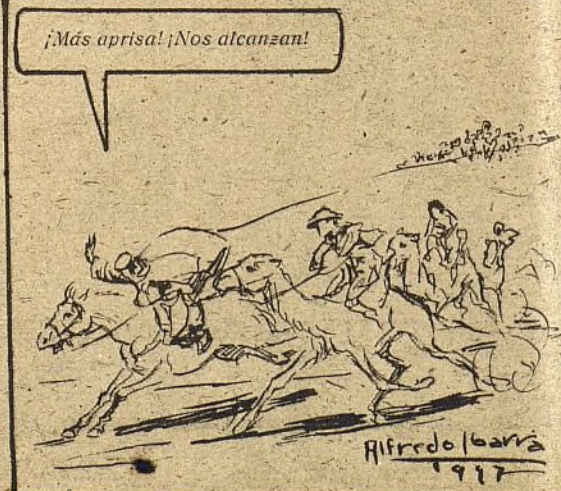 ¡Más aprisa! ¡Nos alcanzan!
Alfredo Ibarra